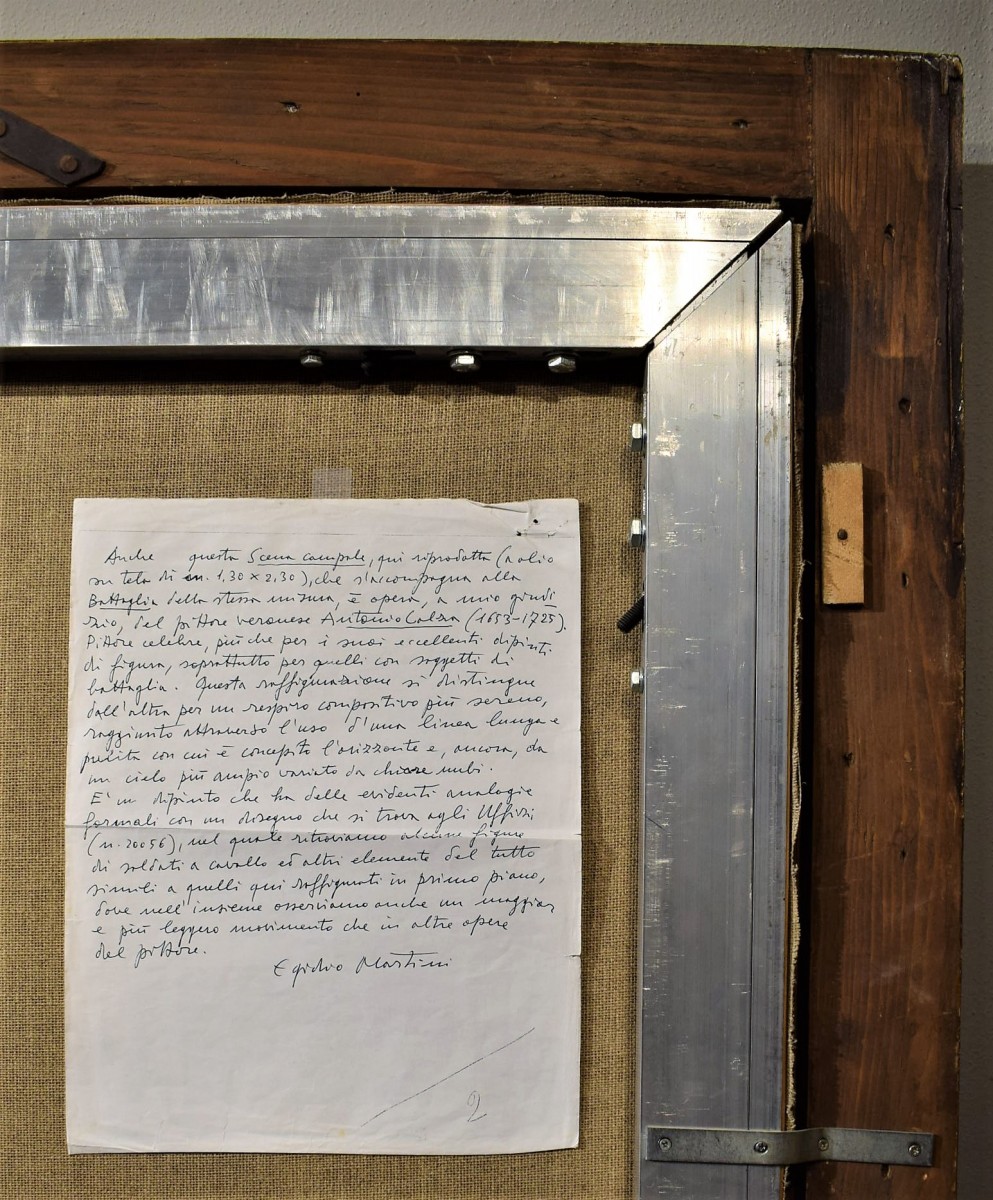 Anche questa Scena campale, qui riprodotta (a olio
su tela di m. 1,30 x 2,30), che s'accompagna alla
Battaglia della stessa misura, è opera, a mio giudi
zio, del pittore veronese Antonio Calza (1653-1725).
Pittore celebre, più che per i suoi eccellenti dipinti
di figura, soprattutto per quelli con soggetti di
battaglia. Questa raffigurazione si distingue
dall'altra per un respiro compositivo più sereno,
raggiunto attraverso l'uso d'una linea lunga e
pulita con cui è concepito l'orizzonte e, ancora, da
un cielo più ampio variato da chiare nubi.
E' un dipinto che ha delle evidenti analogie
formali con un disegno che si trova agli Uffizi
(n. 20056), nel quale ritroviamo alcune figure
di soldati a cavallo ed altri elementi del tutto
simili a quelli qui raffigurati in primo piano,
dove nell'insieme osserviamo anche un maggior
e più leggero movimento che in altre opere
del pittore.
Egidio Martini
2